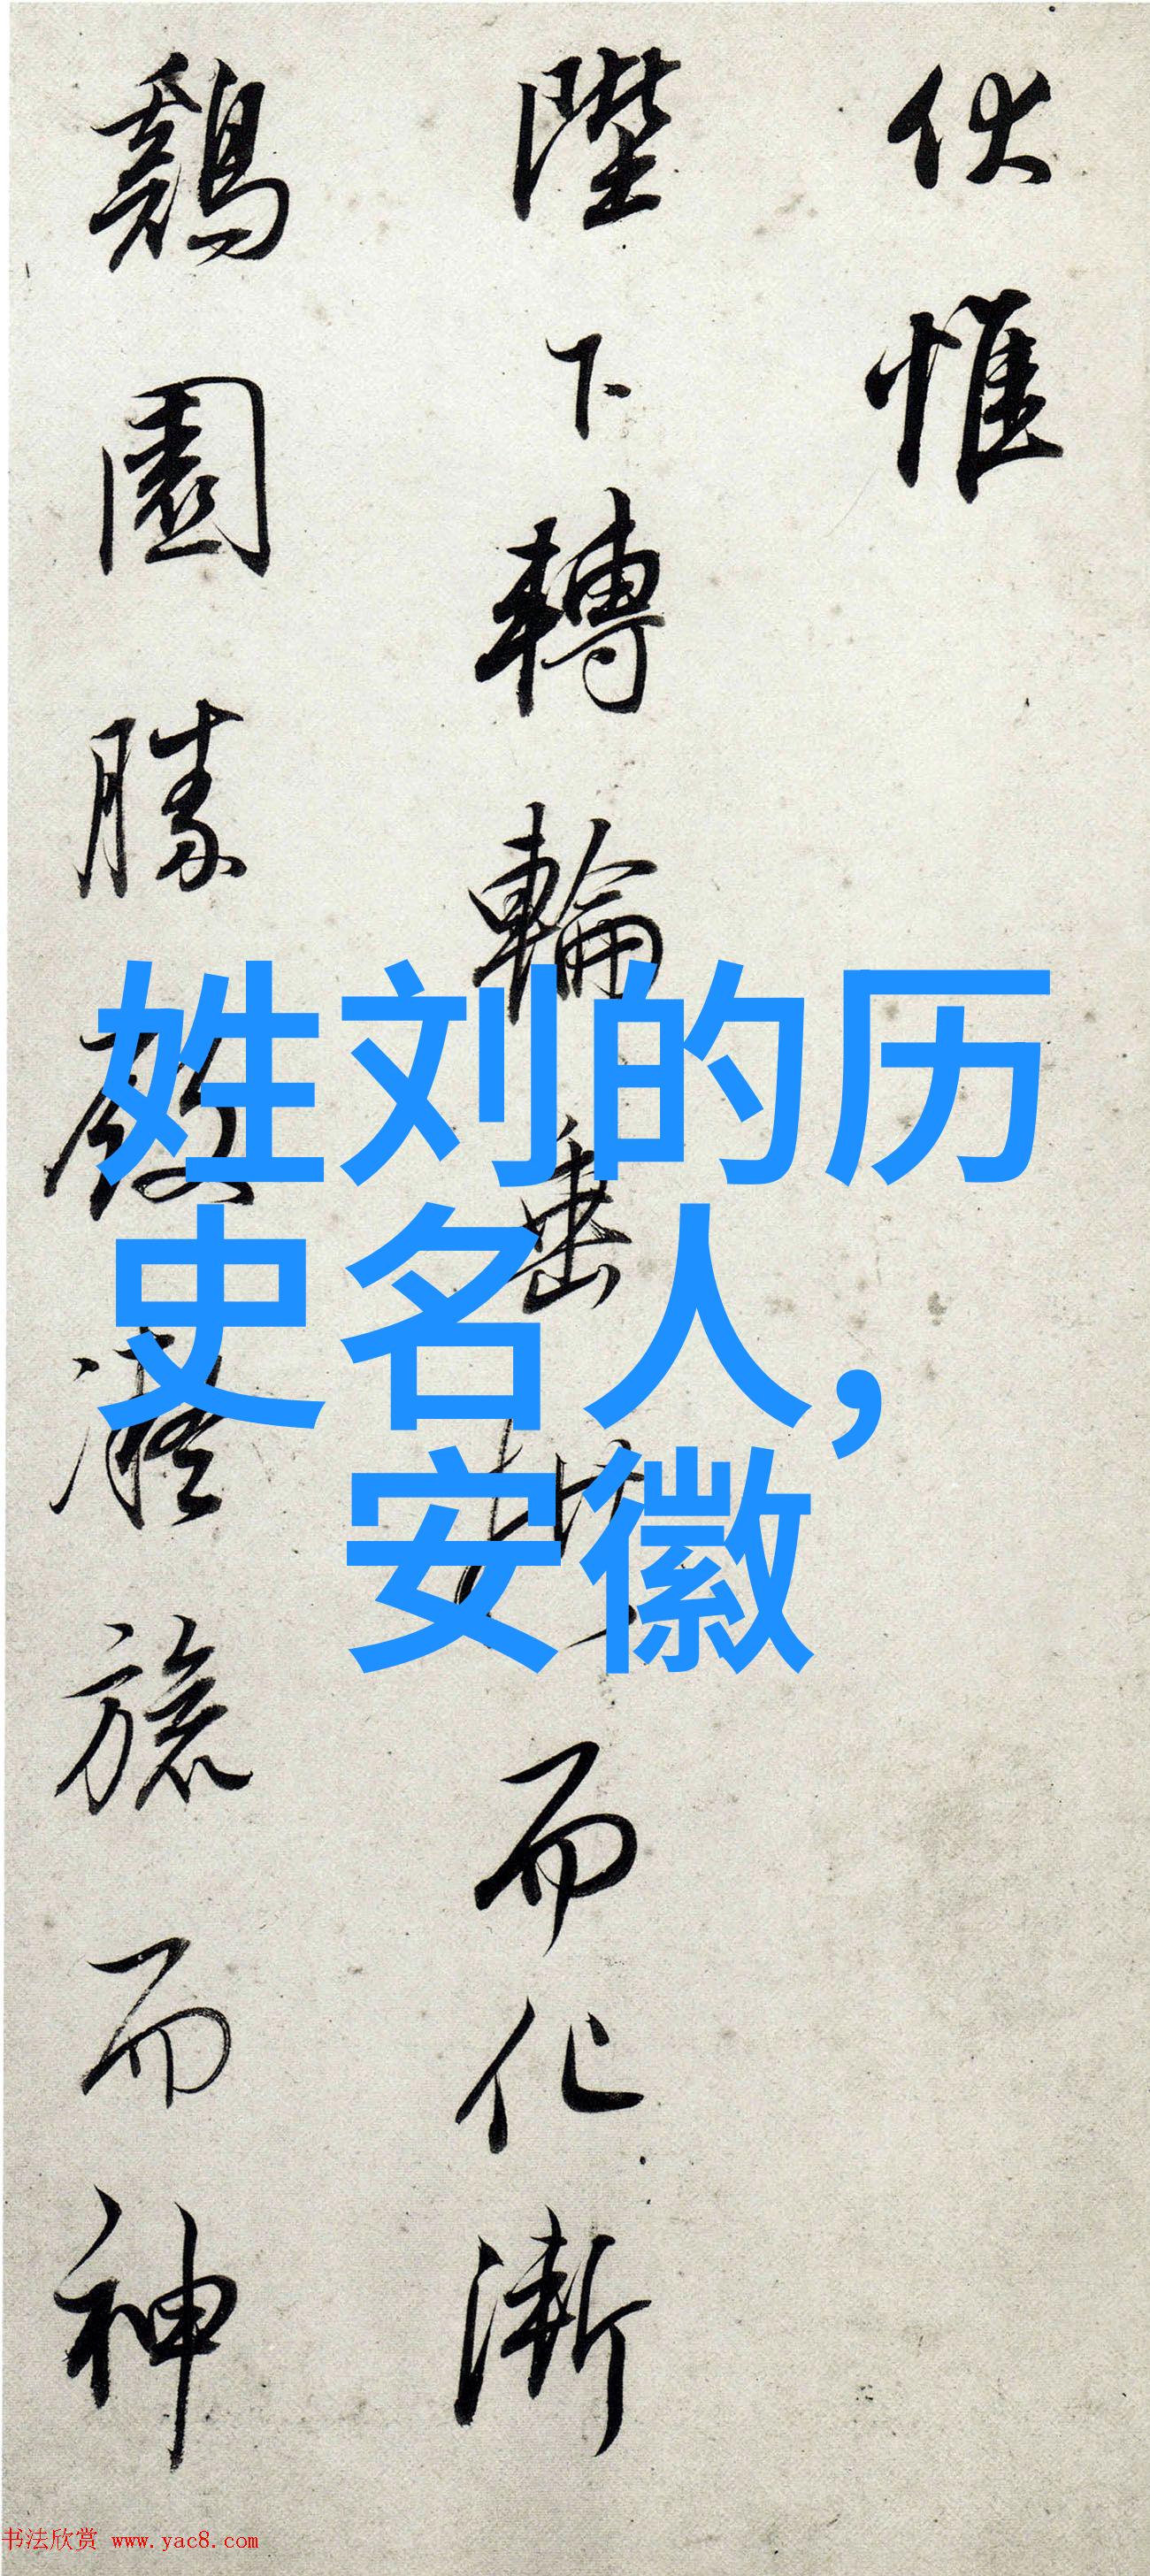 伏惟
陛下轉輪垂
而化漸
鷄園勝
凝旒而神
姓刘的历
史名人，
安徽
书法欣赏 www.yac8.com